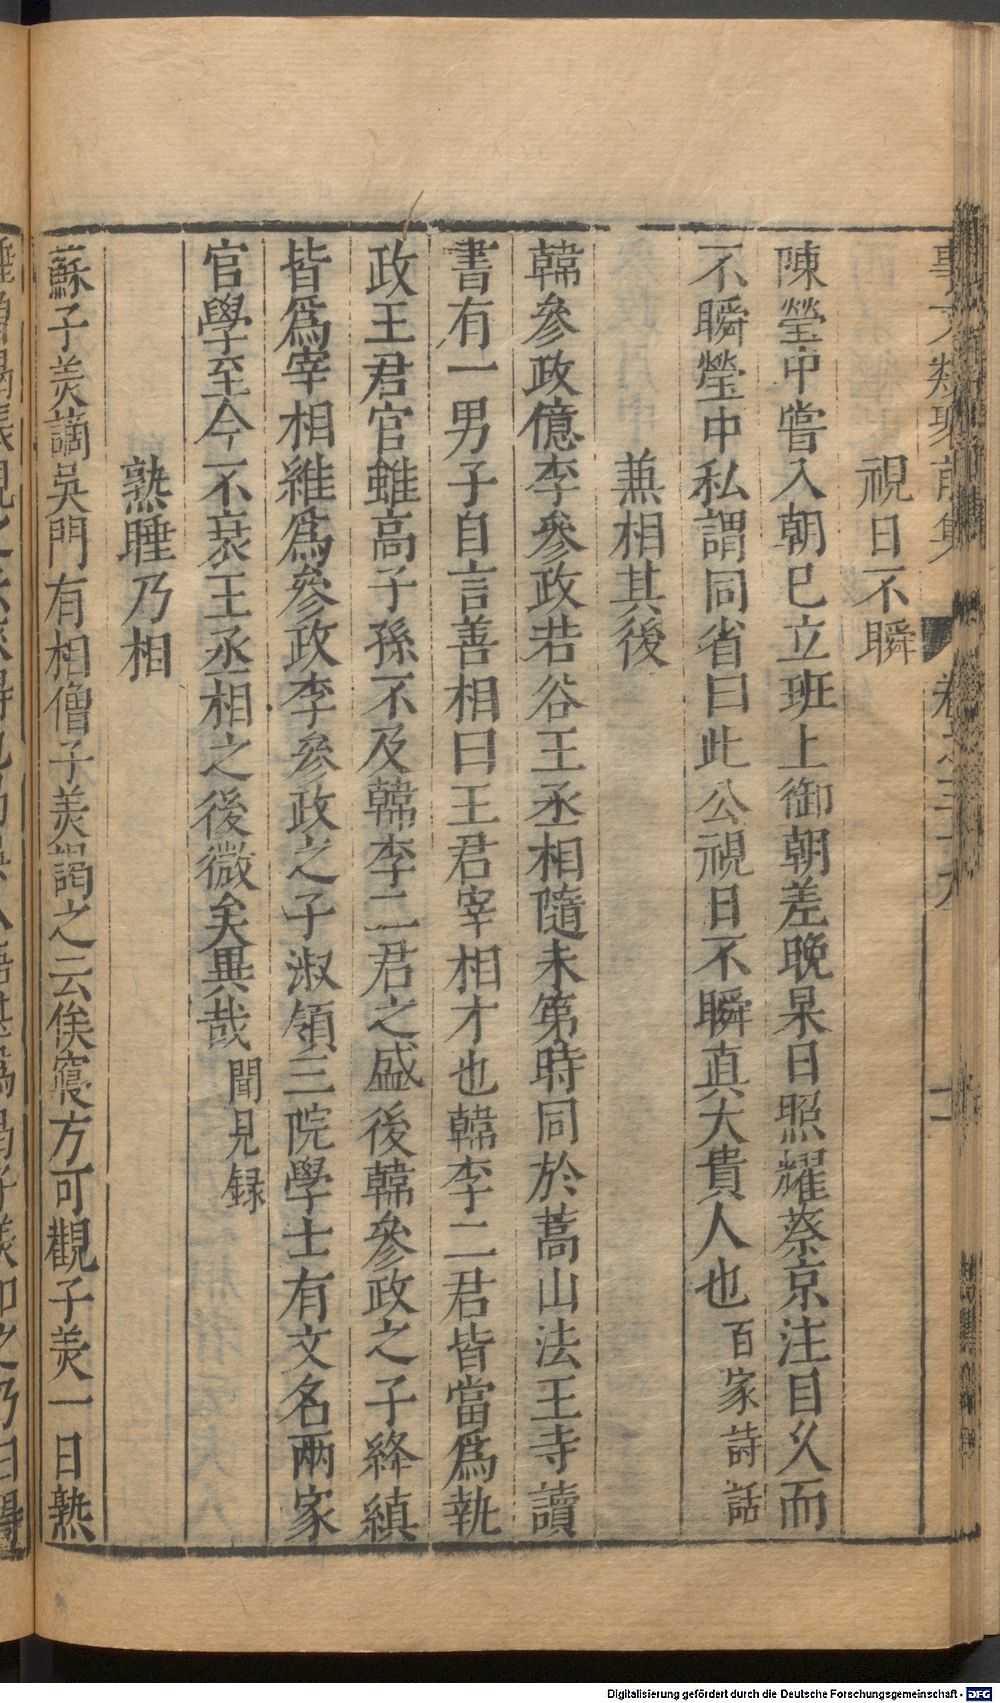 事文類聚前集 卷之三十九 十一
視日不瞬
陳瑩中嘗入朝已立班上御朝差晚杲日照耀蔡京注目乆而
不瞬瑩中私謂同省曰此公視日不瞬真大貴人也 百家詩話
兼相其後
韓參政億李參政若谷王丞相隨未第時同於蒿山法王寺讀
書有一男子自言善相曰王君宰相才也韓李二君皆當爲執
政王君官雖高子孫不及韓李二君之盛後韓參政之子絳縝
皆爲宰相維爲參政李參政之子淑領三院學士有文名兩家
官學至今不衰王丞相之後微矣異哉 聞見録
熟睡乃相
蘇子美謫吳門有相僧子美謁之云俟寢方可觀子美一日熟
Digitalisierung gefördert durch die Deutsche Forschungsgemeinschaft - DFG